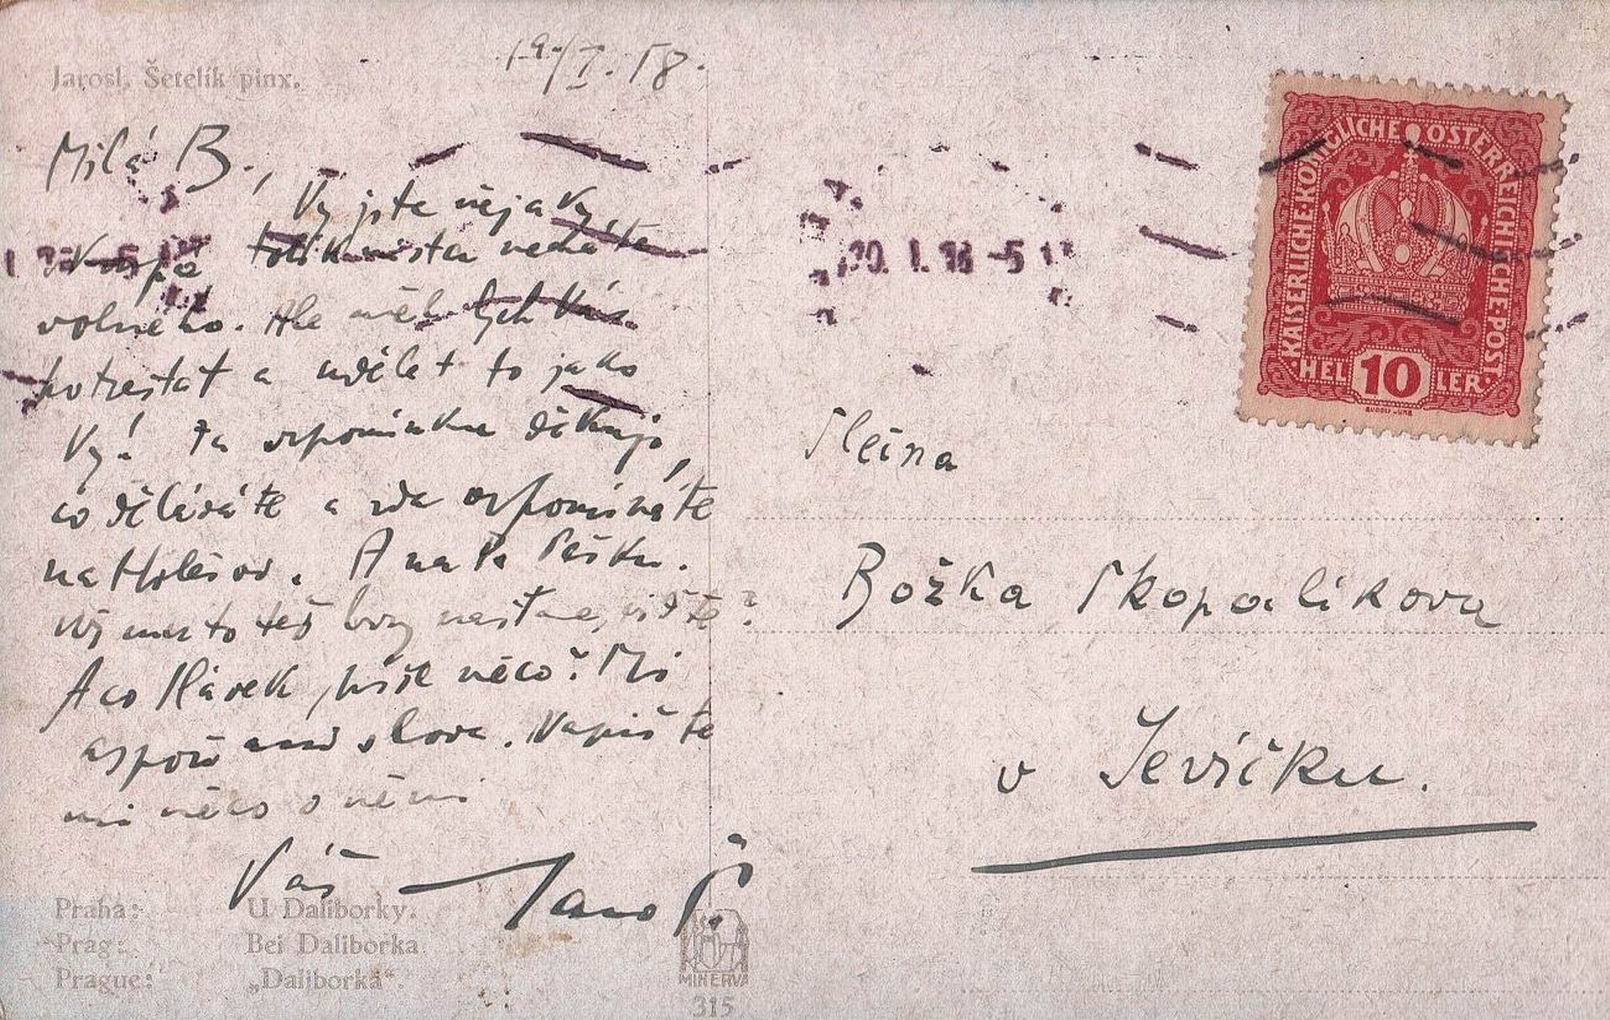 Jarosl. Šetelík pinx.
19/I. 18.
Milá B.,
Vy jste nějaký,
tolik místa necháte
volného. Ale měl bych Vás
potrestat a udělat to jako
Vy! Za vzpomínku děkuji,
co děláváte a zda vzpomínáte
na Holešov. A na
též
A co Slávek, píše něco? Mi
aspoň ani slova. Napište
mi něco o něm
Váš Jano Š.
Praha: U Daliborky.
Prag: Bei Daliborka.
Prague: „Daliborka“.
MINERVA
315
20. I. 18 -5
KAISERLICHE·KÖNIGLICHE ÖSTERREICHISCHE·POST
HELLER
10
Slečna
Božka Skopalíkova
v Jevíčku.